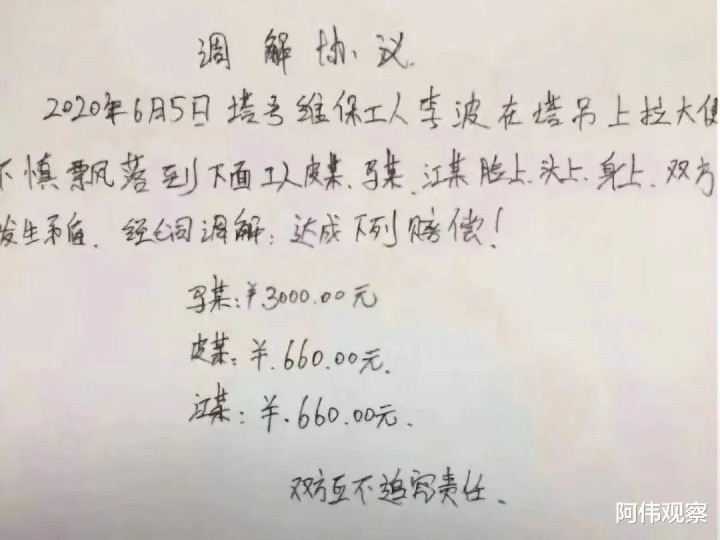 调解协议.
2020年6月5日塔吊维保工人李波在塔吊上拉大便
不慎飘落到下面工人皮某、马某、江某脸上、头上、身上、双方
发生矛盾、经公司调解;达成下列赔偿!
马某:¥3000.00元
皮某:¥.660.00元.
江某:¥.660.00元.
双方互不追究责任.
阿伟观察